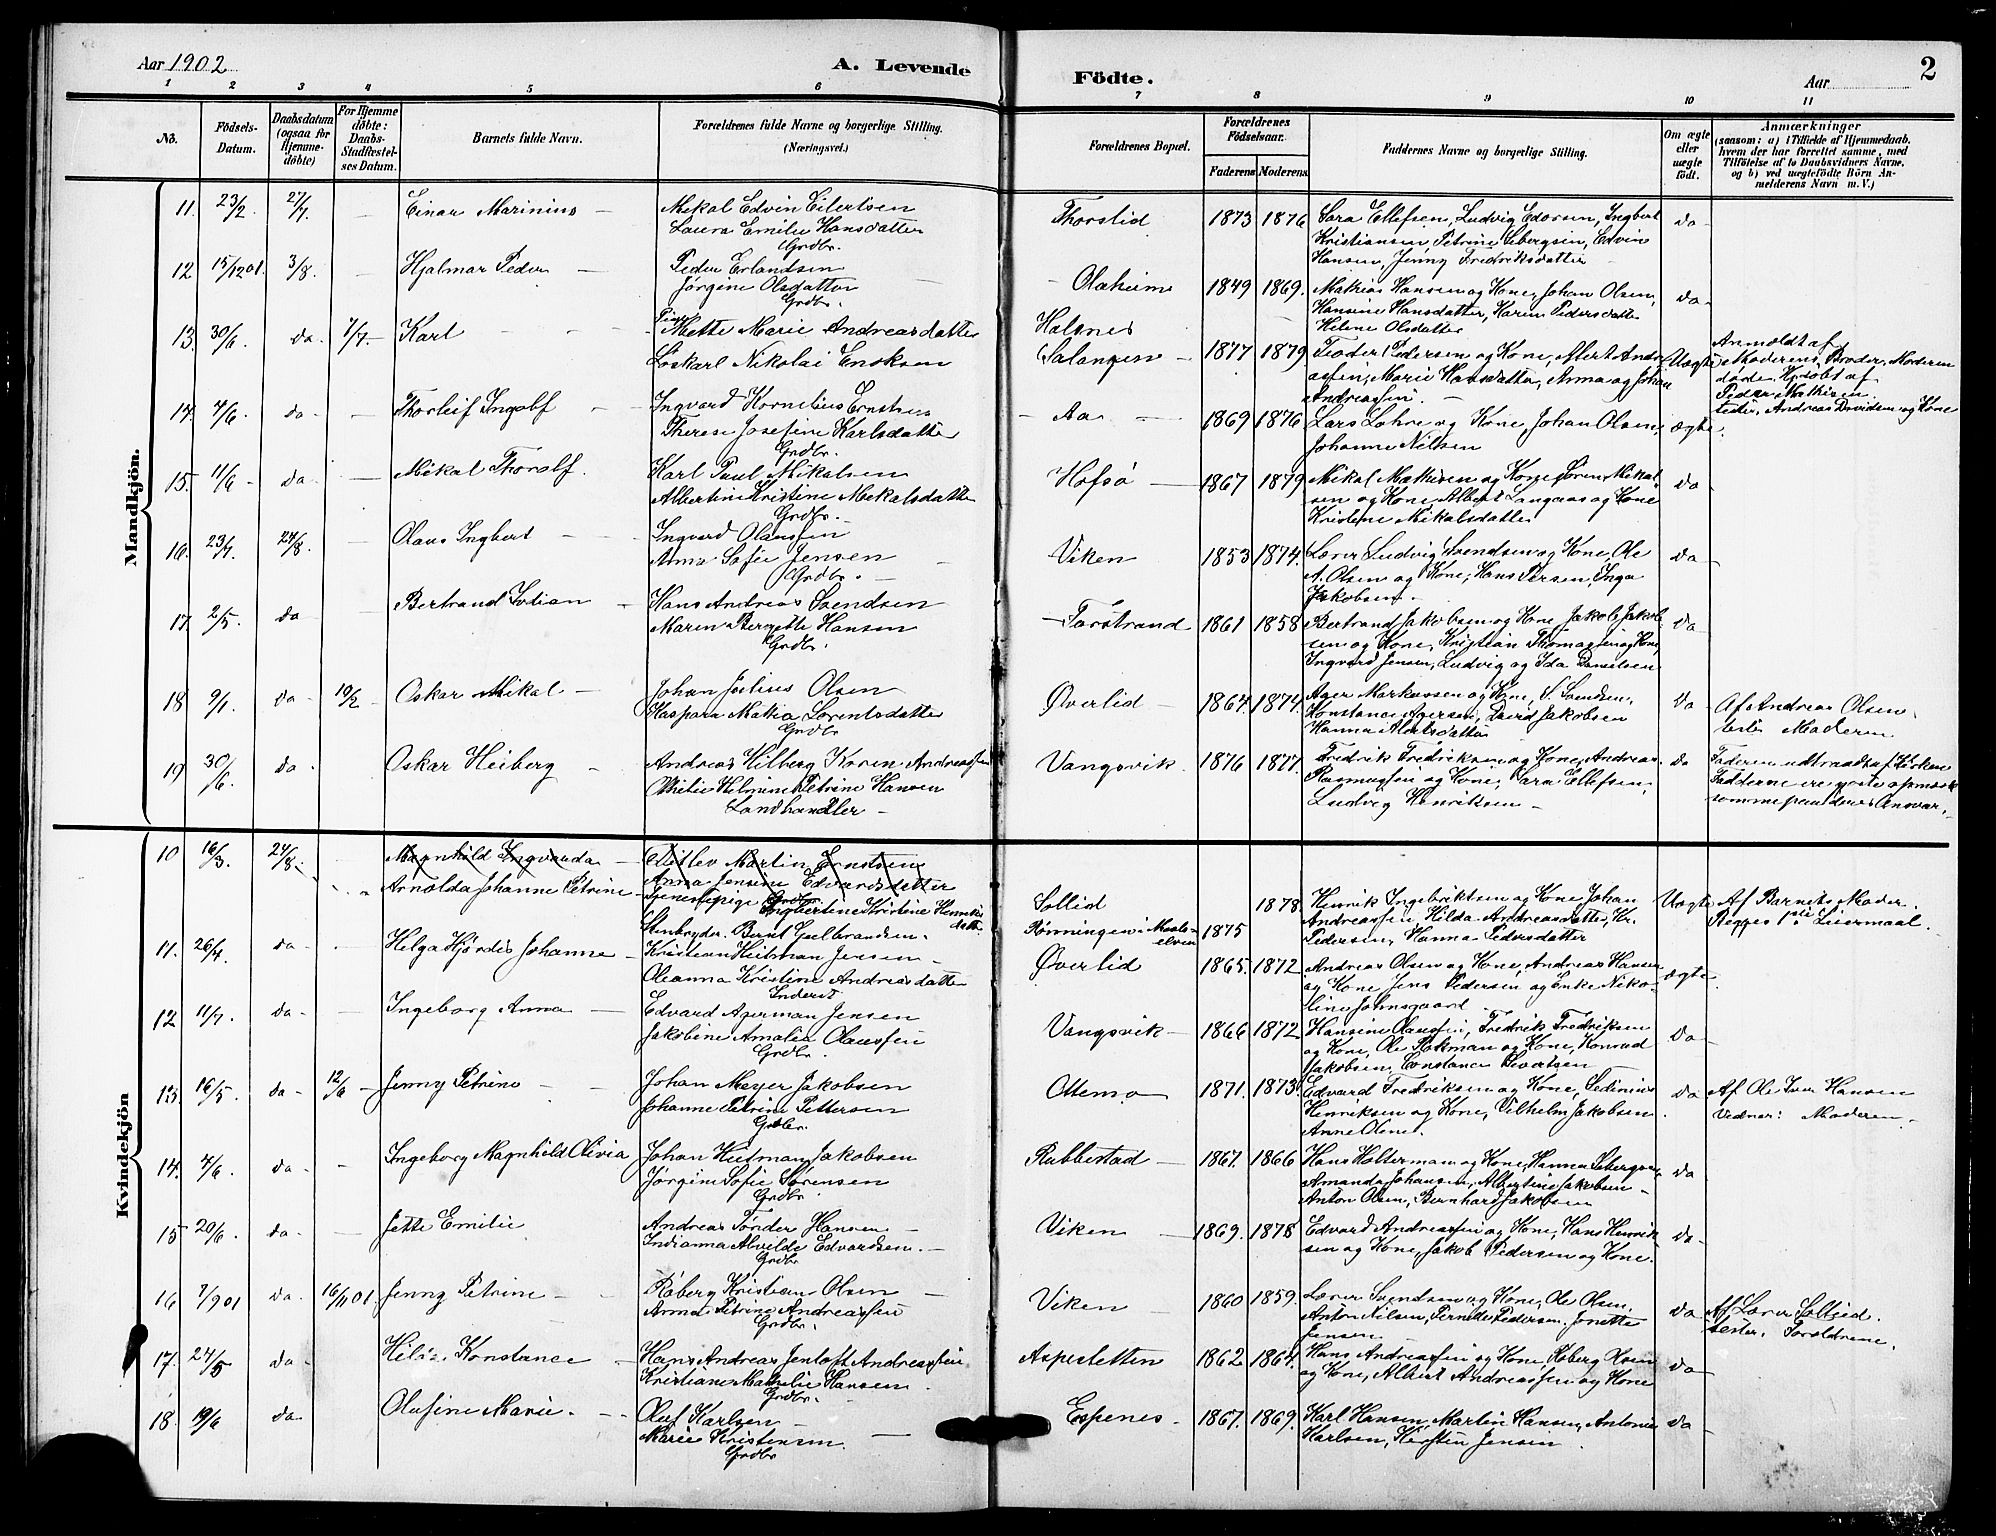 Aar 1902
A. Levende
Födte.
Aar
2
1 2 3 4 5 6 7 8 9 10 11
No.
Födsels-
Datum.
Daabsdatum
(ogsaa for
Hjemme-
döbte)
For Hjemme
döbte:
Daabs-
Stadfæstel-
ses Datum.
Barnets fulde Navn.
Forældrenes fulde Navne og borgerlige Stilling.
(Næringsvei.)
Forældrenes Bopæl.
Forældrenes
Födselsaar.
Faderens
Moderens
Faddernes Navne og borgerlige Stilling.
Om ægte
eller
uægte
födt.
Anmærkninger
(saasom: a) i Tilfælde af Hjemmedaab,
hvem der har forrettet samme, med
Tilföielse af to Daabsvidners Navne.
og b) ved uægtefödte Börn An-
melderens Navn m. V.)
Mandkjön.
11. 23/2. 27/7. — Einar Marinius —
Mikal Edvin Eilertsen
Laura Emilie Hansdatter
Grdbr.
Thorslid 1873 1876
Sara Ellefsen, Ludvig Edorsen, Ingbert
Kristiansen, Petrine Sebergsen, Edvin
Hansen, Jenny Fredriksdatter
do
12 15/12 01. 3/8. — Hjalmar Peder —
Peder Erlandsen
Jørgine Olsdatter
Grdbr.
Olaheim 1849 1869.
Mathias Hansen og Kone, Johan Olsen,
Hansine Hansdatter, Karen Pedersdatter
Helene Olsdatter
do
13. 30/6 do. 7/7. Karl
Pige Mette Marie Andreasdatter
Løskarl Nikolai Enoksen
Halsnes
Salangen — 1877 1879.
Teodor Pedersen og Kone, Albert Andre-
assen, Marie Hansdatter, Anna og Johan
Andreassen. —
Uægte
Anmeldt af
Moderens Broder, Moderen
døde. Hj.døbt af
Peder Mathisen
tester, Andreas Davidsen og Kone
14. 4/6. do — Thorleif Ingolf —
Ingvard Kornelius Ernstsen
Therese Josefine Karlsdatter
Grdbr.
Aa — 1869 1876
Lars Lohre og Kone, Johan Olsen,
Johanne Nilsen
ægte.
15. 11/6 do — Mikal Thoralf.
Karl Paul Mikalsen
Albertine Kristine Mikalsdatter
Grdbr.
Hofsø 1867 1879
Mikal Mathisen og Kone, Søren Mikal-
sen og Kone Albert Langaas og Kone
Kristine Mikalsdatter
do
16. 23/7. 24/8. — Olaus Ingbert —
Ingvard Olaussen
Anna Sofie Jensen
Grdbr.
Viken 1853 1874.
Lærer Ludvig Svendsen og Kone, Ole
A. Olsen og Kone, Hans Persen, Inga
Jakobsen.
do
17. 2/5. do — Bertrand Sofian —
Hans Andreas Svendsen
Maren Bergette Hansen
Grdbr.
Forstrand 1861 1858
Bertrand Jakobsen og Kone Jakob Jakob-
sen og Kone, Kristian Thomassen og Kone,
Ingvard Jensen, Ludvig og Ida Danielsen
do
18 9/1. do 19/2 Oskar Mikal —
Johan Julius Olsen
Kaspara Matia Lorentsdatter
Grdbr
Øverlid 1864. 1874.
Ager Markussen og Kone, S. Svendsen,
Konstance Agersen, David Jakobsen
Hanna Albertsdatter
do
Af Andreas Olsen
teste Moderen
19 30/6. do. Oskar Heiberg —
Andreas Hilberg Koren Andreassen
Emilie Helmine Petrine Hansen
Landhandler —
Vangsvik. 1876 1877.
Fredrik Fredriksen og Kone, Andreas
Rasmussen og Kone, Sara Ellefsen,
Ludvig Henriksen —
do
Faderen udtraadt af Kirken
Fadderne ere gjorte opmærk-
somme paa deres Ansvar.
Kvindekjön
10 16/3. 24/8. — Magnhild Ingvarda —
Arnolda Johanne Petrine
Ditlev Martin Ernstsen
Anna Jensine Edvardsdatter
Grdbr.
Tjenestepige Ingbertine Kristine Henriks-
datter
Stenbryder. Bernt Gulbrandsen.
Sollid 1878.
Rønningen i Maals-
elven 1875
Henrik Ingebriktsen og Kone Johan
Andreassen Hilda Andreasdatter, Hr.
Pedersen, Hanna Pedersdatter
Uægte
Af Barnets Moder.
Begges 1ste Leiermaal.
11. 26/4. do — Helga Hjørdis Johanne —
Kristian Hutman Jensen —
Oleanna Kristine Andreasdatter
Inderst
Øverlid 1865. 1872
Andreas Olsen og Kone, Andreas Hansen
og Kone Jens Pedersen og Enke Niko-
line Johnsgaard
ægte.
12 11/7. do. — Ingeborg Anna —
Edvard Agerman Jensen
Jakobine Amalia Olaussen
Grdbr.
Vangsvik — 1866 1872
Hansine Olaussen, Fredrik Fredriksen
og Kone, Ole Rokman og Kone, Konrad
Jakobsen, Constance Sivertsen
do
13. 16/5. do 12/6 Jenny Petrine —
Johan Meyer Jakobsen
Johanne Petrine Pettersen
Grdbr.
Ottemo 1871. 1873.
Edvard Fredriksen og Kone, Sedinius
Henriksen og Kone, Vilhelm Jakobsen
Anne Olsen.
do
Af Ole Iver Hansen
Vidner: Moderen.
14. 4/6. do — Ingeborg Magnhild Olivia
Johan Hutman Jakobsen
Jørgine Sofie Sørensen
Grdbr.
Rubbestad — 1867. 1866
Hans Holterman og Kone, Hanna Sebergsen,
Amanda Johansen, Albertine Jakobsen —
Anton Olsen, Bernhard Jakobsen
do
15 20/6 do. — Jette Emilie
Andreas Tønder Hansen —
Indianna Alvilde Edvardsen. —
Grdbr
Viken 1869. 1878
Edvard Andreassen og Kone, Hans Henrik-
sen og Kone, Jakob Pedersen og Kone.
do
16 7/9 01 do. 16/11 01. Jenny Petrine —
Roberg Kristian Olsen —
Anna Petrine Andreassen
Grdbr.
Viken 1860 1859.
Lærer Svendsen og Kone, Ole Olsen,
Anton Nilsen, Pernille Pedersen, Jonette
Jensen
do
Af Lærer Solheid.
tester. Forældrene.
17. 24/5 do Konstance —
Hans Andreas Jentoft Andreassen
Kristiane Mathilie Hansen.
Grdbr.
Aspestetten 1862 1864.
Hans Andreassen og Kone Roberg Olsen
og Kone, Albert Andreassen og Kone
do
18. 19/6 do. Olufine Marie. —
Oluf Karlsen —
Marie Kristensen —
Grdbr
Espenes. 1867. 1869.
Karl Hansen, Martin Hansen, Antonie
Karlsen, Kirsten Jensen.
do